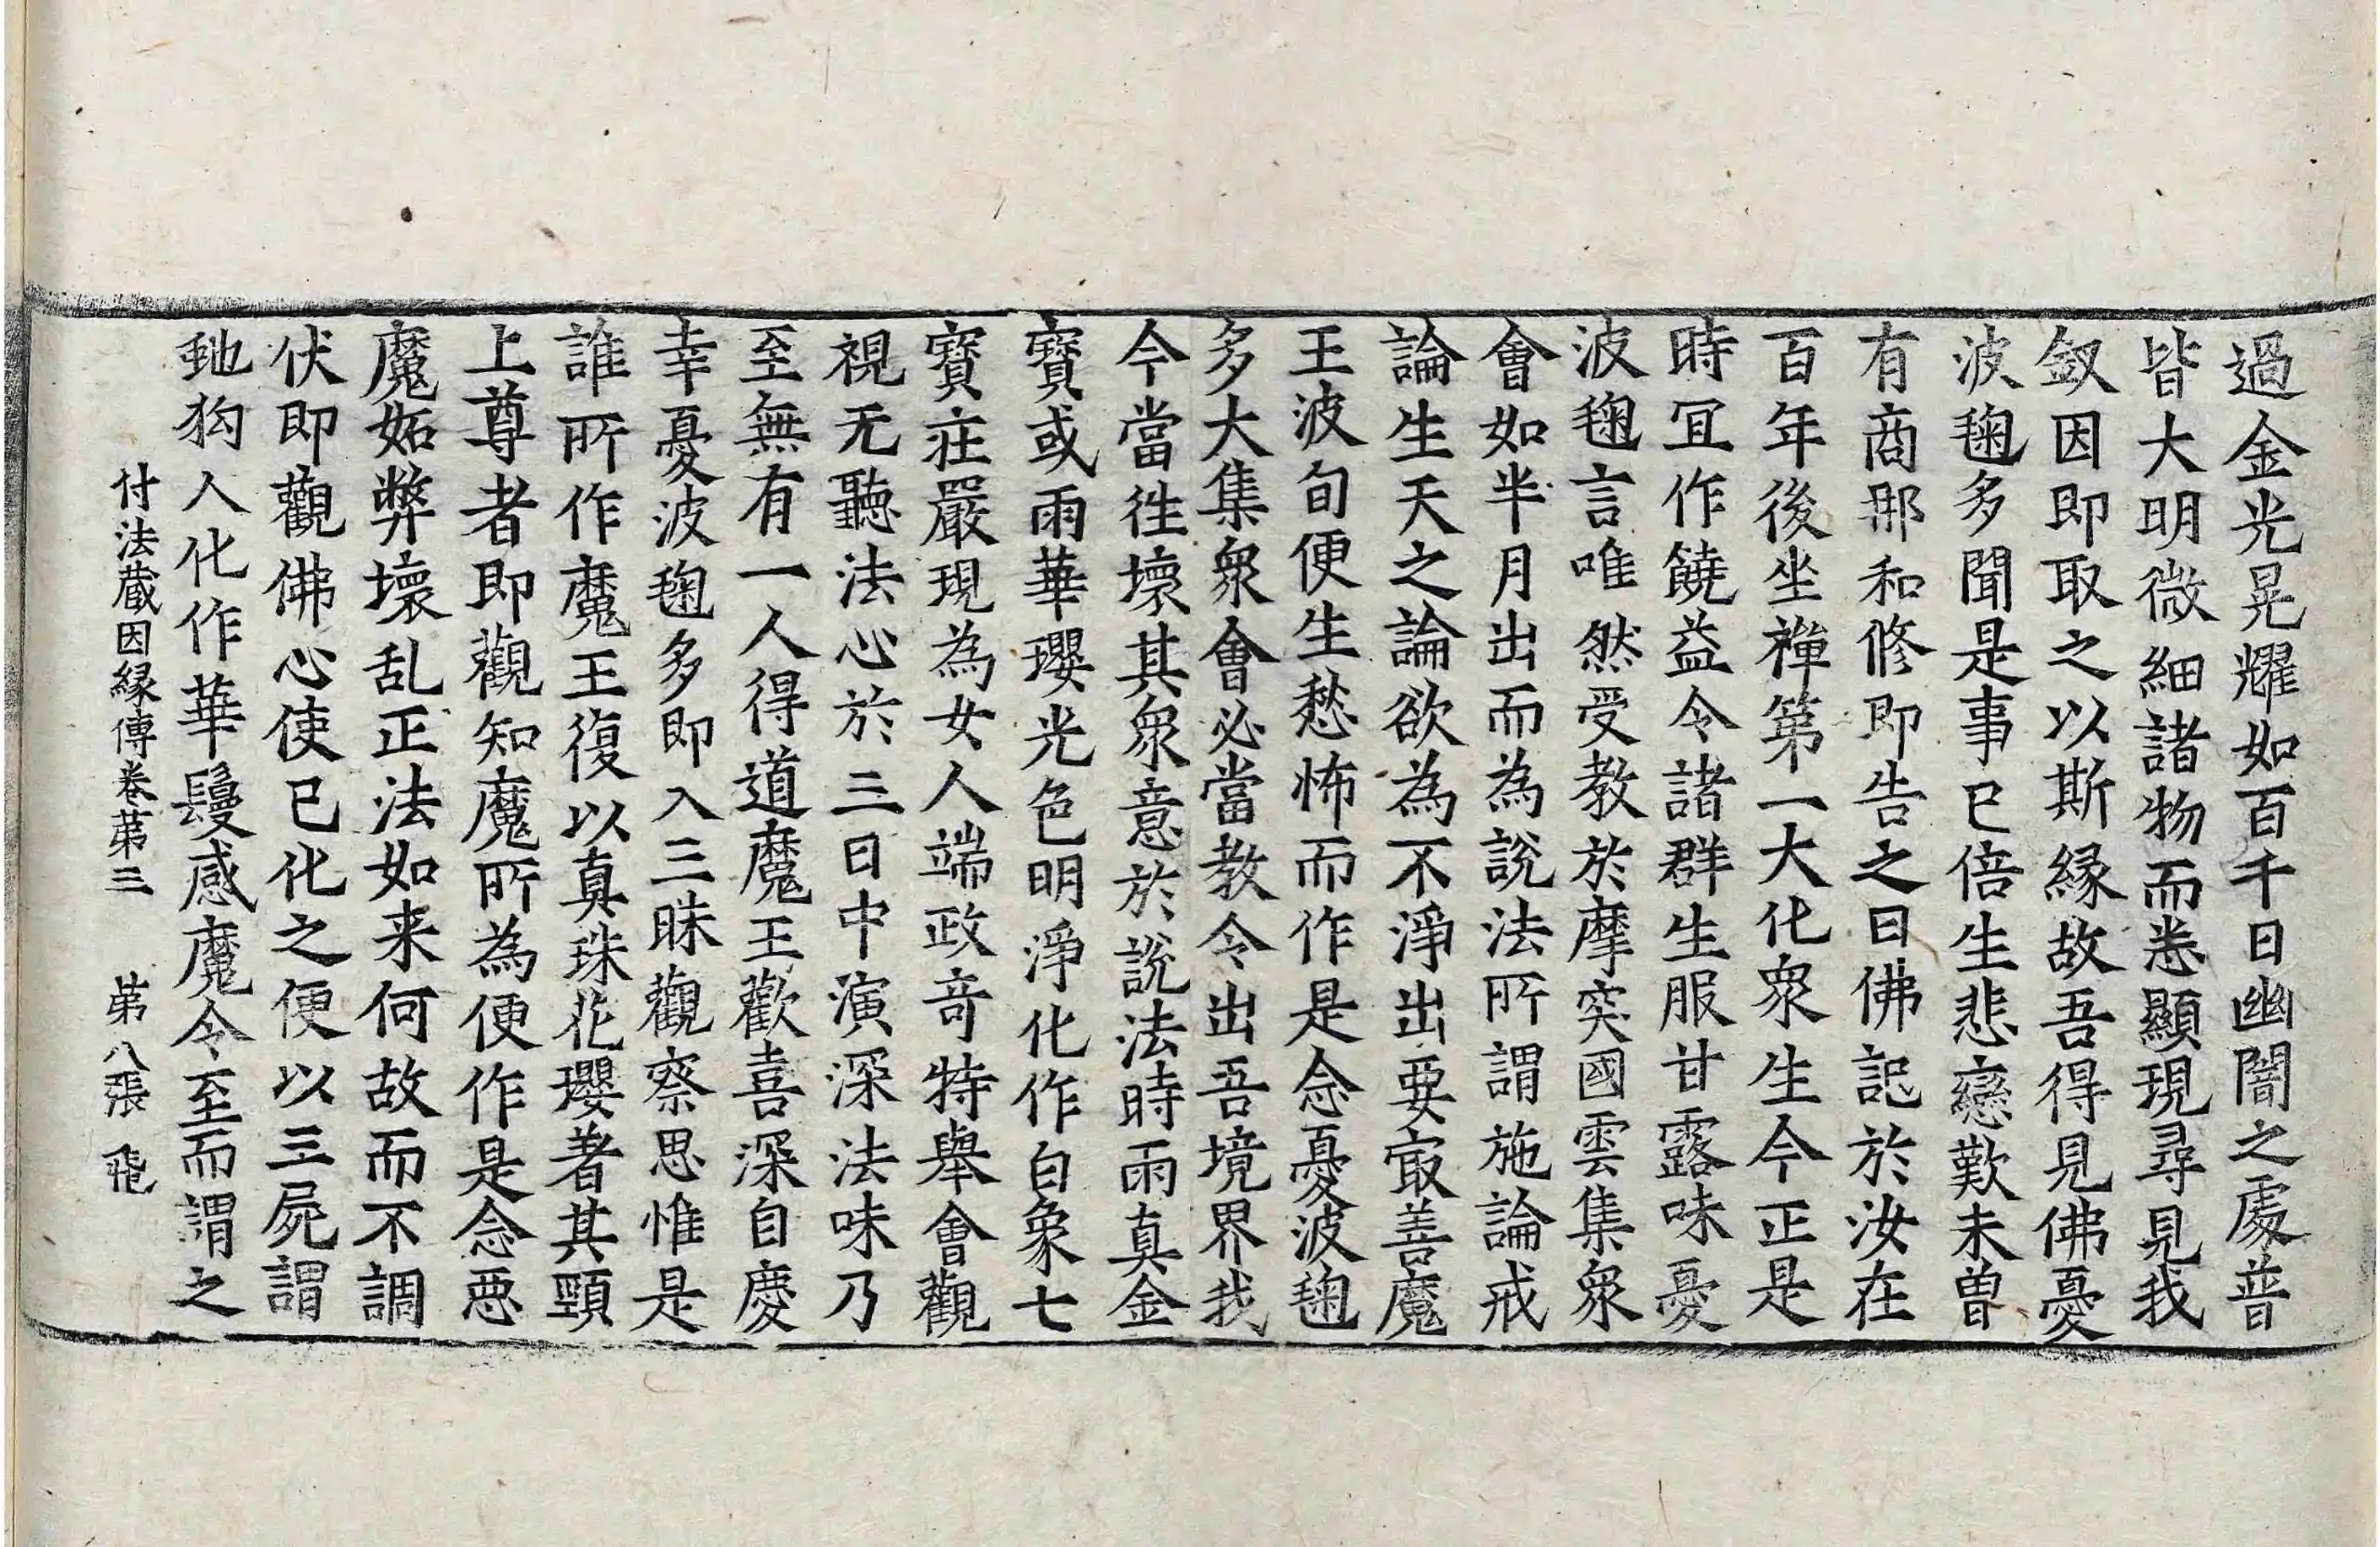 過金光晃耀如百千日幽闇之處普
皆大明微細諸物而悉顯現尋見我
釵因即取之以斯緣故吾得見佛憂
波毱多聞是事已倍生悲戀歎未曾
有商那和修即告之曰佛記於汝在
百年後坐禪第一大化衆生今正是
時冝作饒益令諸群生服甘露味憂
波毱言唯然受教於摩突國雲集衆
會如半月出而為說法所謂施論戒
論生天之論欲為不淨出要㝡善魔
王波旬便生愁怖而作是念憂波毱
多大集衆會必當教令出吾境界我
今當往壞其衆意於說法時雨真金
寶或雨華瓔光色明淨化作白象七
寶莊嚴現為女人端政竒特舉會觀
視无聽法心於三日中演深法味乃
至無有一人得道魔王歡喜深自慶
幸憂波毱多即入三昧觀察思惟是
誰所作魔王復以真珠花瓔著其頸
上尊者即觀知魔所為便作是念惡
魔妬弊壞乱正法如来何故而不調
伏即觀佛心使已化之便以三屍謂
虵狗人化作華鬘感魔令至而謂之
付法蔵因縁傳卷第三　第八張　飛